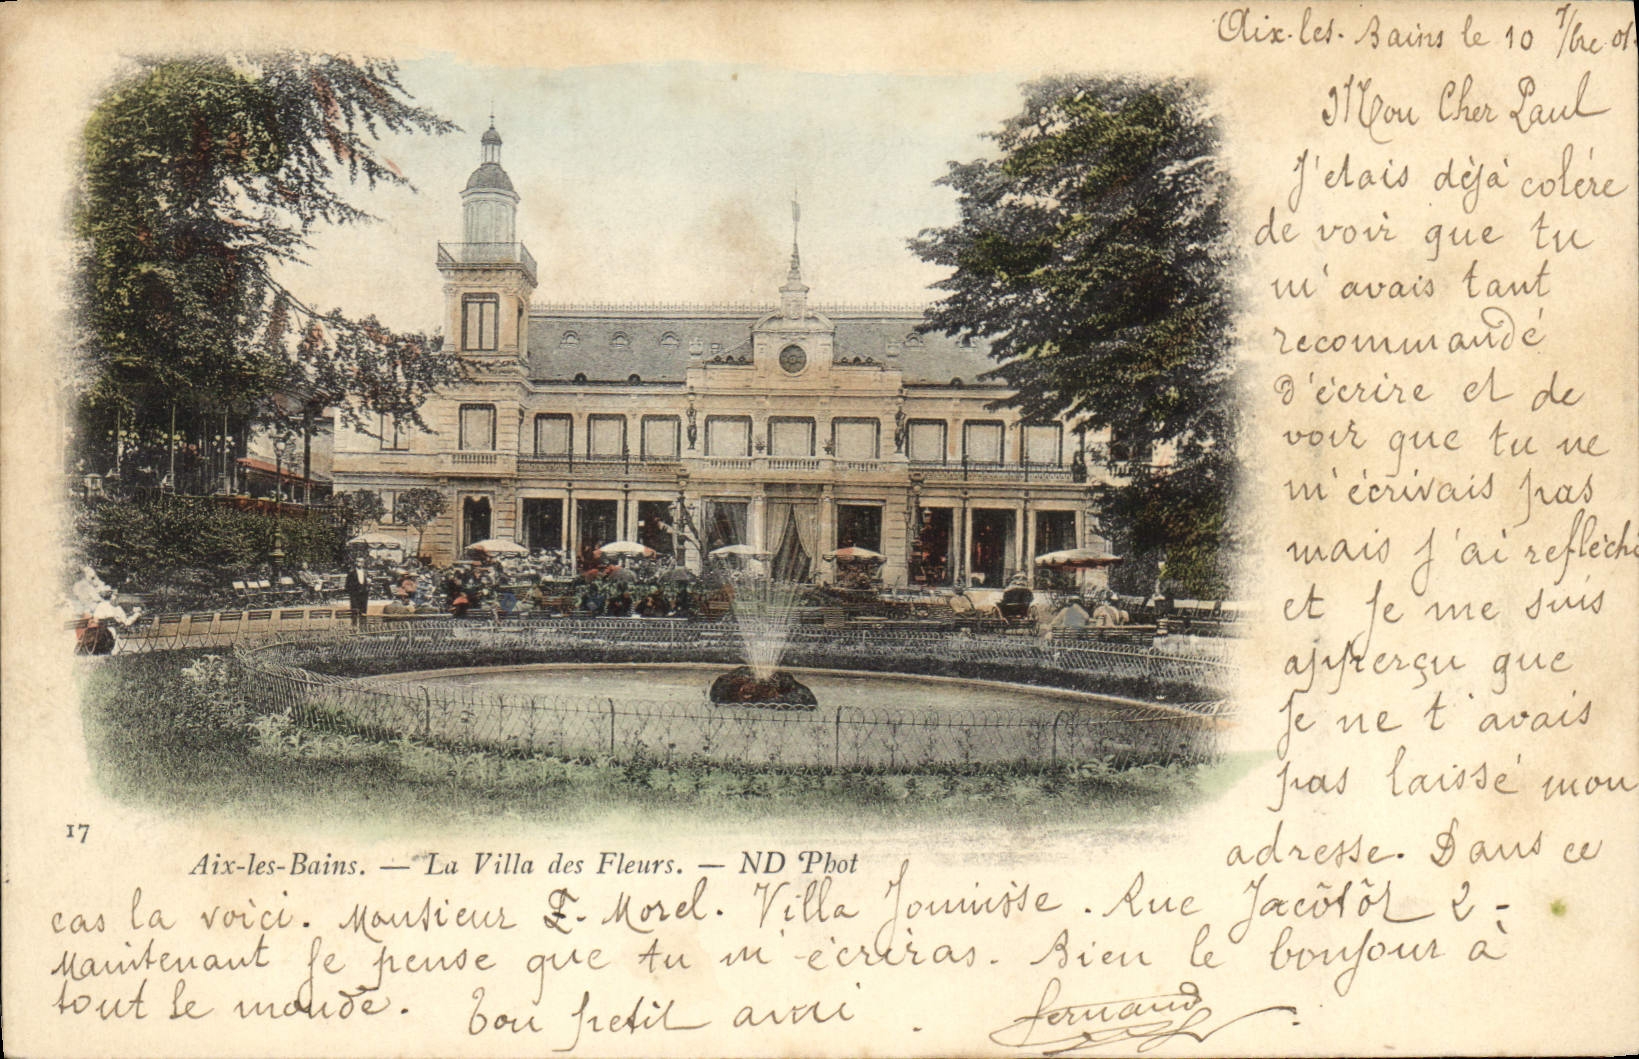 Aix-les-Bains le 10 7/bre 01
Mon Cher Paul
J'etais déjà colére
de voir que tu
m'avais tant
recommandé
D'écrire et de
voir que tu ne
m'écrivais pas
mais j'ai refléchi
et Je me suis
apperçu que
Je ne t'avais
pas laissé mon
adresse. Dans ce
17
Aix-les-Bains. — La Villa des Fleurs. — ND Phot
cas la voici. Monsieur F. Morel. Villa . Rue Jacôtôt 2 -
Maintenant Je pense que tu m'écriras. Bien le bonjour à
tout le monde. Ton petit ami. Fernand